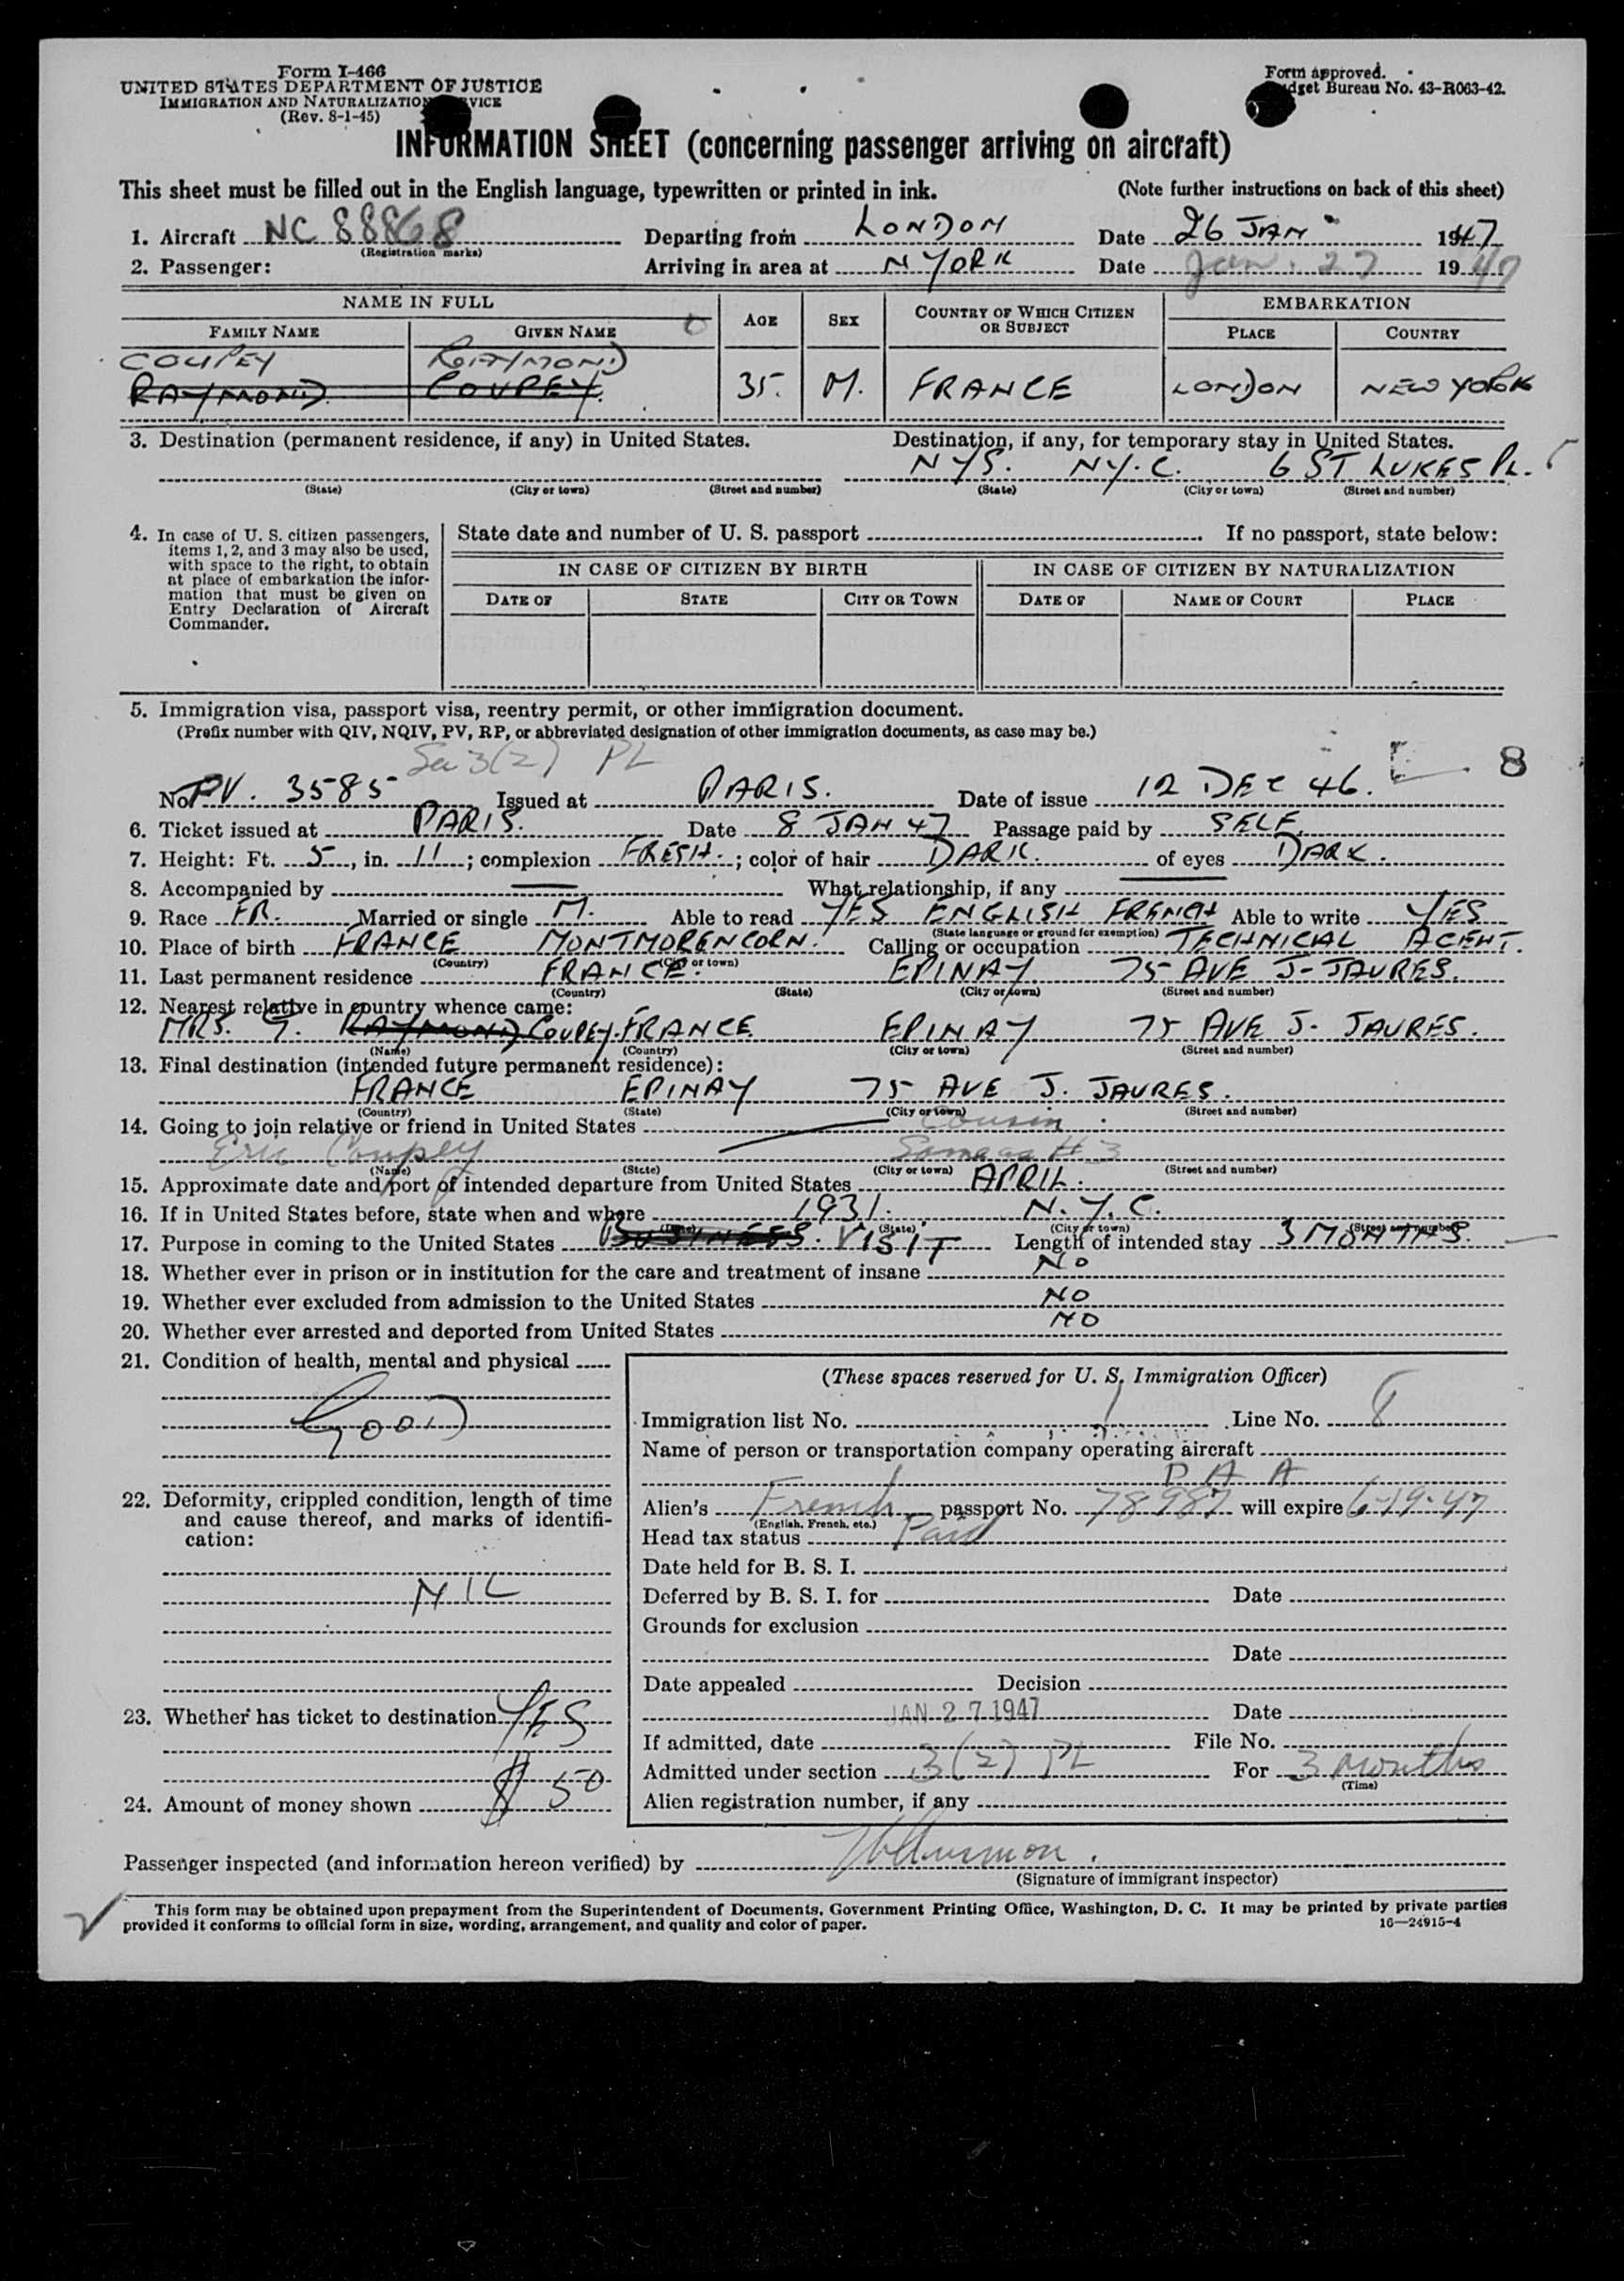 Form I-466
UNITED STATES DEPARTMENT OF JUSTICE
IMMIGRATION AND NATURALIZATION SERVICE
(Rev. 8-1-45)
Form approved.
Budget Bureau No. 43-R063-42.
INFORMATION SHEET (concerning passenger arriving on aircraft)
This sheet must be filled out in the English language, typewritten or printed in ink. (Note further instructions on back of this sheet)
1. Aircraft NC 88868 Departing from LONDON Date 26 JAN 1947
(Registration marks)
2. Passenger: Arriving in area at N YORK Date Jan. 27 1947
NAME IN FULL AGE SEX COUNTRY OF WHICH CITIZEN OR SUBJECT EMBARKATION
FAMILY NAME GIVEN NAME PLACE COUNTRY
COUPEY RAYMOND
RAYMOND COUPEY. 35. M. FRANCE LONDON NEW YORK
3. Destination (permanent residence, if any) in United States. Destination, if any, for temporary stay in United States.
NYS. NY.C. 6 ST LUKES PL.
(State) (City or town) (Street and number) (State) (City or town) (Street and number)
4. In case of U. S. citizen passengers, items 1, 2, and 3 may also be used, with space to the right, to obtain at place of embarkation the information that must be given on Entry Declaration of Aircraft Commander.
State date and number of U. S. passport If no passport, state below:
IN CASE OF CITIZEN BY BIRTH IN CASE OF CITIZEN BY NATURALIZATION
DATE OF STATE CITY OR TOWN DATE OF NAME OF COURT PLACE
5. Immigration visa, passport visa, reentry permit, or other immigration document.
(Prefix number with QIV, NQIV, PV, RP, or abbreviated designation of other immigration documents, as case may be.)
Sec 3(2) PL 8
No. PV. 3585 Issued at PARIS. Date of issue 12 DEC 46.
6. Ticket issued at PARIS. Date 8 JAN 47 Passage paid by SELF.
7. Height: Ft. 5, in. 11; complexion FRESH.; color of hair DARK. of eyes DARK.
8. Accompanied by — What relationship, if any —
9. Race FR. Married or single M. Able to read YES ENGLISH FRENCH Able to write YES
(State language or ground for exemption)
10. Place of birth FRANCE MONTMORENCORN. Calling or occupation TECHNICIAL AGENT.
(Country) (City or town)
11. Last permanent residence FRANCE. EPINAY 75 AVE J-JAURES.
(Country) (State) (City or town) (Street and number)
12. Nearest relative in country whence came:
MRS. G. RAYMOND COUPEY. FRANCE EPINAY 75 AVE J. JAURES.
(Name) (Country) (City or town) (Street and number)
13. Final destination (intended future permanent residence):
FRANCE EPINAY 75 AVE J. JAURES.
(Country) (State) (City or town) (Street and number)
14. Going to join relative or friend in United States — Cousin
Eric Coupey Same as # 3
(Name) (State) (City or town) (Street and number)
15. Approximate date and port of intended departure from United States APRIL.
16. If in United States before, state when and where 1931. N.Y.C.
(Date) (State) (City or town) (Street and number)
17. Purpose in coming to the United States BUSINESS. VISIT Length of intended stay 3 MONTHS.
18. Whether ever in prison or in institution for the care and treatment of insane NO
19. Whether ever excluded from admission to the United States NO
20. Whether ever arrested and deported from United States NO
21. Condition of health, mental and physical
GOOD
22. Deformity, crippled condition, length of time and cause thereof, and marks of identification:
NIL
23. Whether has ticket to destination YES
24. Amount of money shown $ 50
(These spaces reserved for U. S. Immigration Officer)
Immigration list No. 1 Line No. 8
Name of person or transportation company operating aircraft
P A A
Alien's French passport No. 78987 will expire 6-19-47
(English, French, etc.)
Head tax status Paid
Date held for B. S. I.
Deferred by B. S. I. for Date
Grounds for exclusion
Date
Date appealed Decision
JAN 27 1947 Date
If admitted, date File No.
Admitted under section 3(2) PL For 3 months
(Time)
Alien registration number, if any
Passenger inspected (and information hereon verified) by
(Signature of immigrant inspector)
This form may be obtained upon prepayment from the Superintendent of Documents, Government Printing Office, Washington, D. C. It may be printed by private parties
provided it conforms to official form in size, wording, arrangement, and quality and color of paper. 16—24915-4